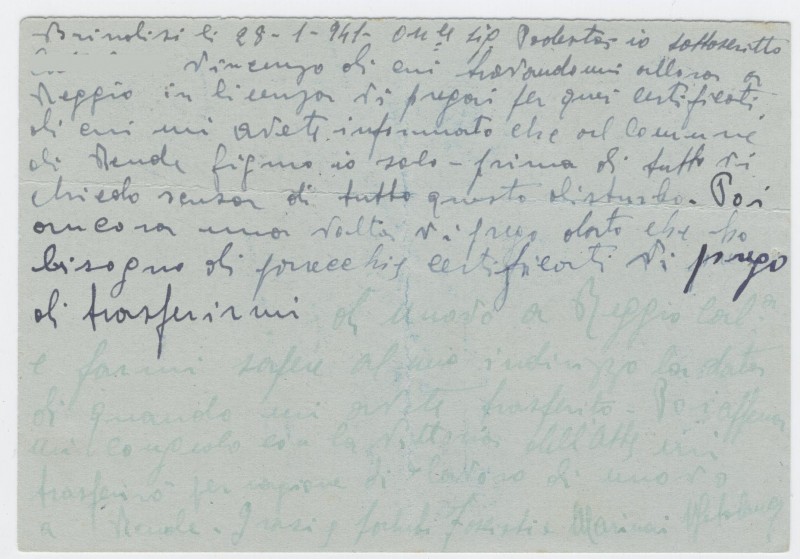 Brindisi li 28-1-941- On.le sig Podestà io sottoscritto
Vincenzo di cui trovandomi allora a
Reggio in licenza vi pregai per quei certificati
di cui mi avete informato che al Comune
di Rende figuro io solo - prima di tutto vi
chiedo scusa di tutto questo disturbo. Poi
ancora una volta vi prego dato che ho
bisogno di parecchie certificati vi prego
di trasferirmi di nuovo a Reggio Cal.a
e farmi sapere al mio indirizzo la data
di quando mi avete trasferito - Poi appena
mi congedo con la vittoria dell'Asse mi
trasferirò per ragione di lavoro di nuovo
a Rende - Grazie saluti Fascisti - Marinai